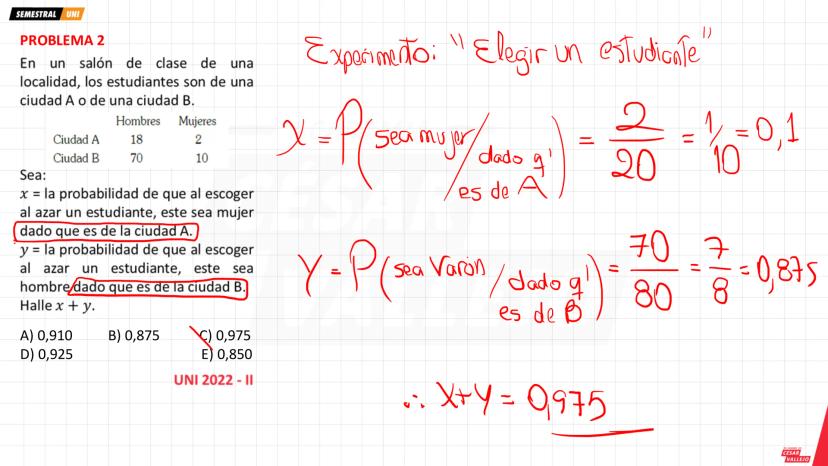 SEMESTRAL UNI
PROBLEMA 2
En un salón de clase de una
localidad, los estudiantes son de una
ciudad A o de una ciudad B.
Hombres Mujeres
Ciudad A 18 2
Ciudad B 70 10
Sea:
x = la probabilidad de que al escoger
al azar un estudiante, este sea mujer
dado que es de la ciudad A.
y = la probabilidad de que al escoger
al azar un estudiante, este sea
hombre dado que es de la ciudad B.
Halle x + y.
A) 0,910 B) 0,875 C) 0,975
D) 0,925 E) 0,850
UNI 2022 - II
Experimento: "Elegir un estudiante"
X = P(sea mujer / dado q' es de A) = 2/20 = 1/10 = 0,1
Y = P(sea varon / dado q' es de B) = 70/80 = 7/8 = 0,875
∴ X+Y = 0,975
CESAR
VALLEJO